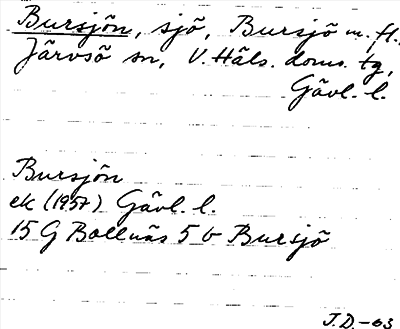 Bursjön, sjö, Bursjö m. fl.
Järvsö sn, V. Häls. doms. tg,
Gävl. l.
Bursjön
ek (1957) Gävl. l.
15 G Bollnäs 5 b Bursjö
J.D.-63